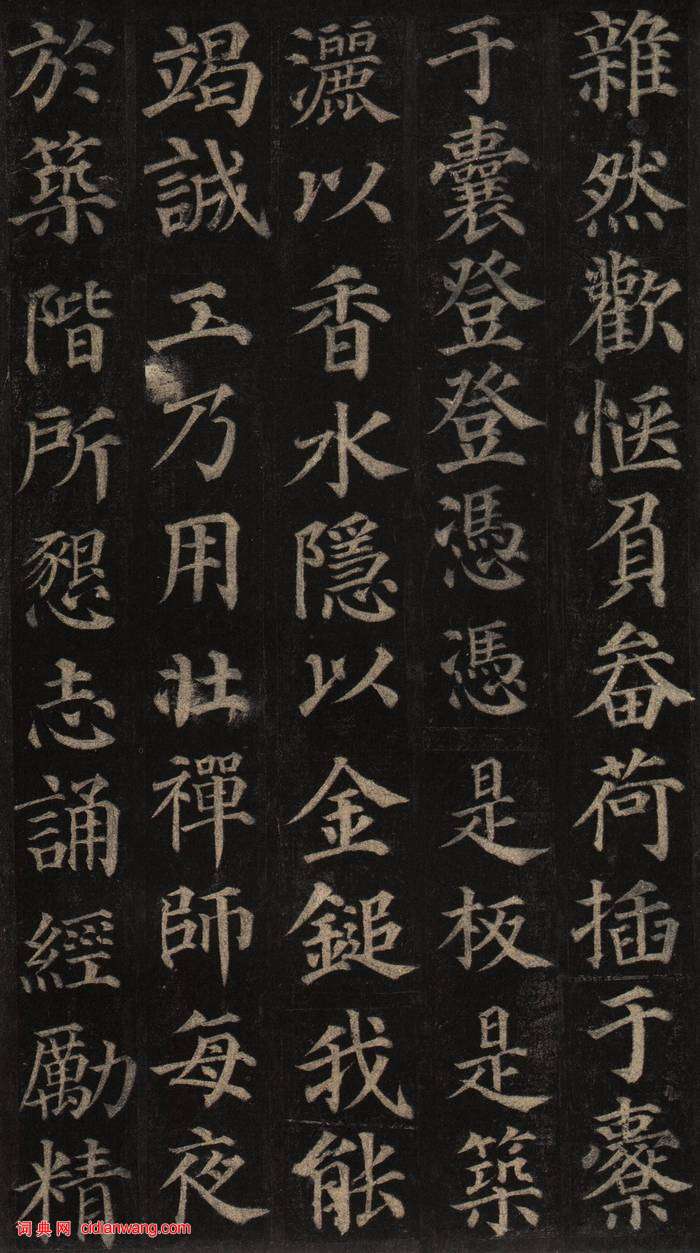 雜然歡愜負畚荷插于橐
于囊登登憑憑是板是築
灑以香水隱以金鎚我能
竭誠工乃用壯禪師每夜
於築階所懇志誦經勵精
词典网 cidianwang.com